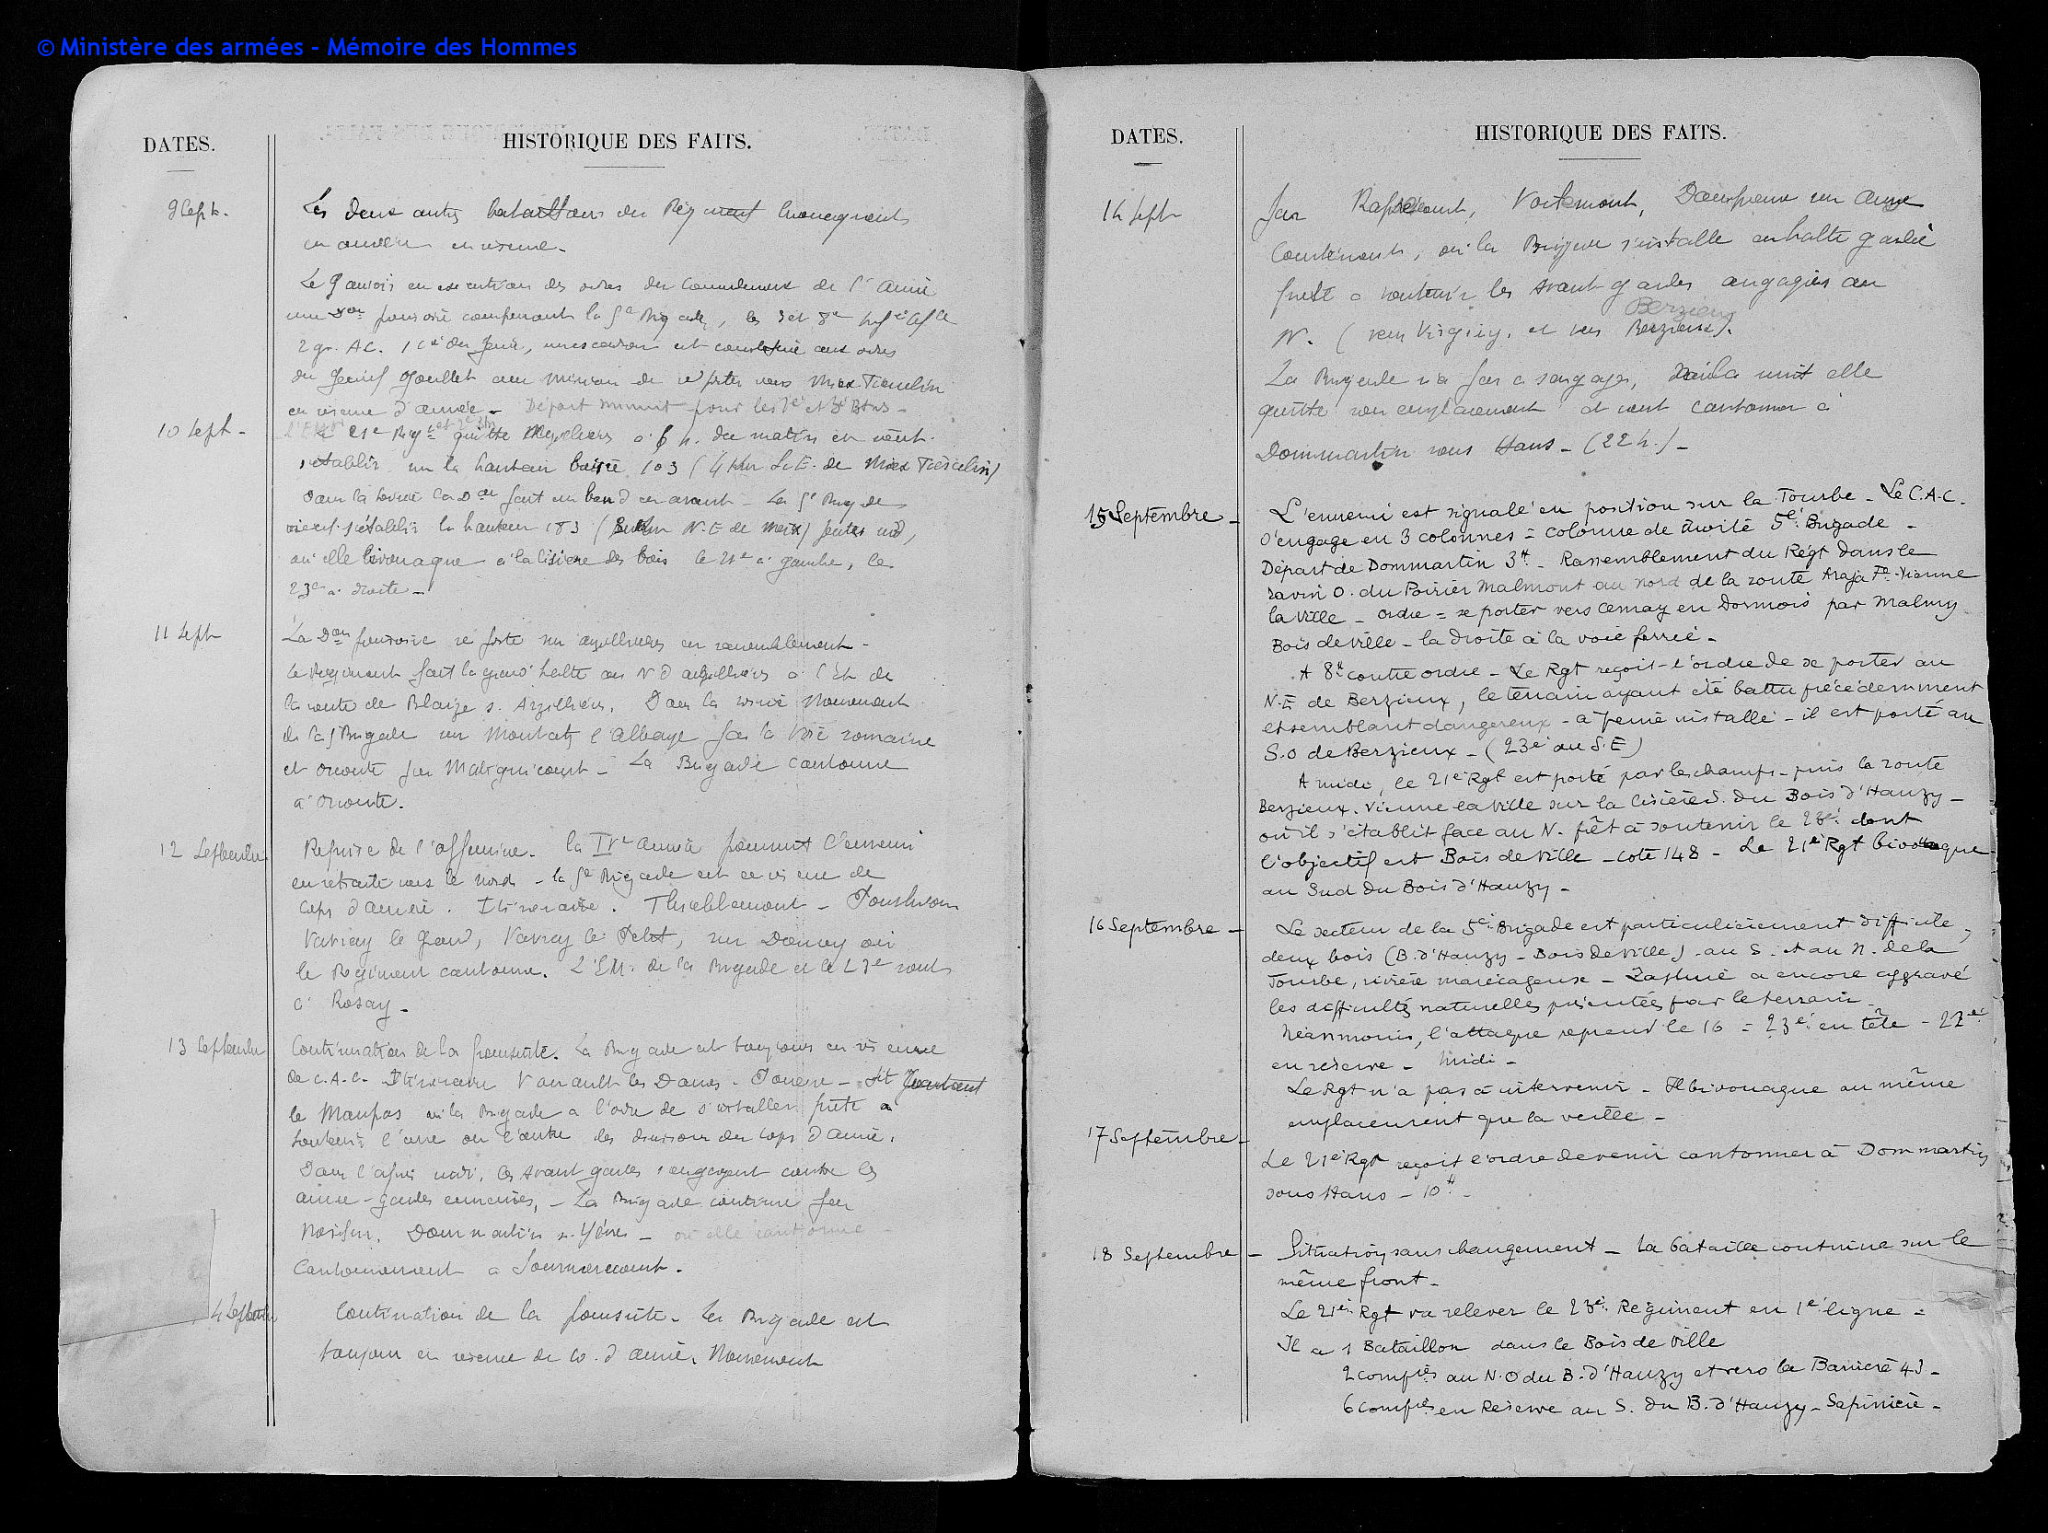 © Ministère des armées - Mémoire des Hommes
DATES.
HISTORIQUE DES FAITS.
9 Sept.
Les deux autres bataillons du Régiment
en arrière en réserve -
Le 9 au soir en exécution des ordres du Commandement de l'Armée
une Don provisoire comprenant la 5e Brigade, les 3 et 8e
2 gr. AC. 1 Cie du Génie, un escadron est constituée aux ordres
du Général Goullet avec mission de se porter vers Meix Tiercelin
en réserve d'armée - Départ minuit pour les 1er et 3e Btns -
10 Sept -
Le 21e Regt quitte à 6 h. du matin et vient
s'établir sur la hauteur boisée 103 (4 Km S.E. de Meix Tiercelin)
Dans la soirée la Don fait un bond en avant - La 5e Brigade
vient s'établir hauteur 183 ( N.E de Meix)
où elle bivouaque à la lisière des bois le 21e à gauche, le
23e à droite -
11 Sept
La Don provisoire se porte sur Arzillières en rassemblement -
Le Régiment fait la grand'halte au N d'Arzillières à l'Est de
la route de Blaize s. Arzillières. Dans la soirée Mouvement
de la 5e Brigade sur Moutiers l'Abbaye par la Voie romaine
et Orconte par Matignicourt - La Brigade cantonne
à Orconte.
12 Septembre
Reprise de l'offensive. la IVe Armée poursuit l'ennemi
en retraite vers le Nord - la 5e Brigade est en réserve de
corps d'armée. Itinéraire. Thieblemont - Ponthion
Vavray le Grand, Vavray le Petit, sur Doucey où
le Régiment cantonne. L'EM. de la Brigade et le 23e sont
à Rosay -
13 Septembre
Continuation de la poursuite. La Brigade est toujours en réserve
de C.A.C. Itinéraire Vanault les Dames - - St
le Maupas où la Brigade a l'ordre de s'installer prête à
soutenir l'une ou l'autre des divisions du corps d'armée.
Dans l'après midi, les avant gardes s'engagent contre les
arrière-gardes ennemies, - La Brigade continue par
Noirlieu, Dommartin s. Yèvre - où elle cantonne -
Cantonnement à Somme
14 Septembre
Continuation de la poursuite - La Brigade est
toujours en réserve de Co. d'armée, Mouvement
DATES.
HISTORIQUE DES FAITS.
14 Sept
par Rapsécourt, Voilemont, Dampierre
Courtémont, où la Brigade s'installe en halte gardée
prête à soutenir les Avant gardes engagées au
Berzieux
N. (vers Virginy, et vers Berzieux).
La Brigade n'a pas à s'engager, Dans la nuit elle
quitte son emplacement et vient cantonner à
Dommartin sous Hans - (22 h.) -
15 Septembre -
L'ennemi est signalé en position sur la Tourbe - Le C.A.C.
s'engage en 3 colonnes = colonne de droite 5e Brigade -
Départ de Dommartin 3H - Rassemblement du Régt dans le
ravin O. du Poirier Malmont au nord de la route Araja Fe - Vienne
la Ville - ordre = se porter vers Cernay en Dormois par Malmy -
Bois de Ville - la droite à la voie ferrée -
A 8H contre ordre - Le Rgt reçoit l'ordre de se porter au
N-E de Berzieux, le terrain ayant été battu précédemment
et semblant dangereux - à peine installé - il est porté au
S.O de Berzieux - (23e au S.E)
A midi, le 21e Rgt est porté par les champs - puis la route
Berzieux. Vienne la Ville sur la lisière S. du Bois d'Hauzy -
où il s'établit face au N. prêt à soutenir le 23e dont
l'objectif est Bois de Ville - cote 148 - Le 21e Rgt bivouaque -
au Sud du Bois d'Hauzy -
16 Septembre -
Le secteur de la 5e Brigade est particulièrement difficile,
deux bois (B. d'Hauzy - Bois de Ville) - au S. et au N. de la
Tourbe, rivière marécageuse - La pluie a encore aggravé
les difficultés naturelles présentées par le terrain -
Néanmoins, l'attaque reprend le 16 = 23e en tête - 21e
en réserve - Midi -
Le Rgt n'a pas à intervenir - Il bivouaque au même
emplacement que la veille -
17 Septembre -
Le 21e Rgt reçoit l'ordre de venir cantonner à Dommartin
sous Hans - 10H -
18 Septembre -
Situation sans changement - La bataille continue sur le
même front -
Le 21e Rgt va relever le 23e Régiment en 1e ligne =
Il a 1 Bataillon dans le Bois de Ville
2 compies au N.O du B. d'Hauzy et vers la Barrière 43 -
6 compies en Réserve au S. du B. d'Hauzy - Sapinière -